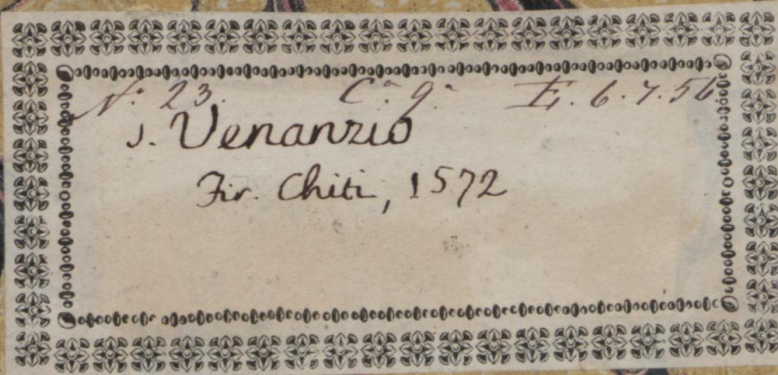 N.° 23. C.ª 9.ª E. 6. 7. 56
S. Venanzio
Fir. Chiti, 1572